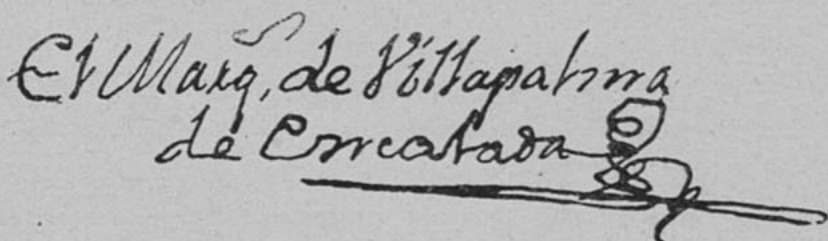 El Marq, de Villapalma
de Encalada